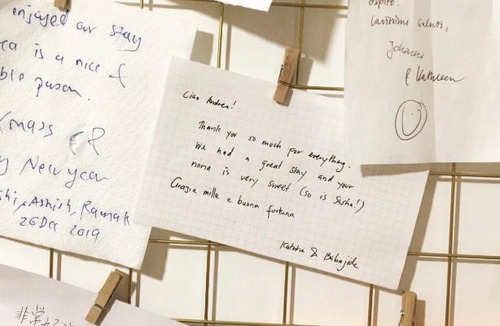 enjoyed our stay
is a nice &
ble person.
mass
New year
Ashish, Ramak
26 Dec 2019
Ciao Andrea!
Thank you so much for everything.
We had a great stay and your
nona is very sweet (so is Sasha!)
Grazie mille e buona fortuna
&
saluti,
Johannes
& Kathleen
非常